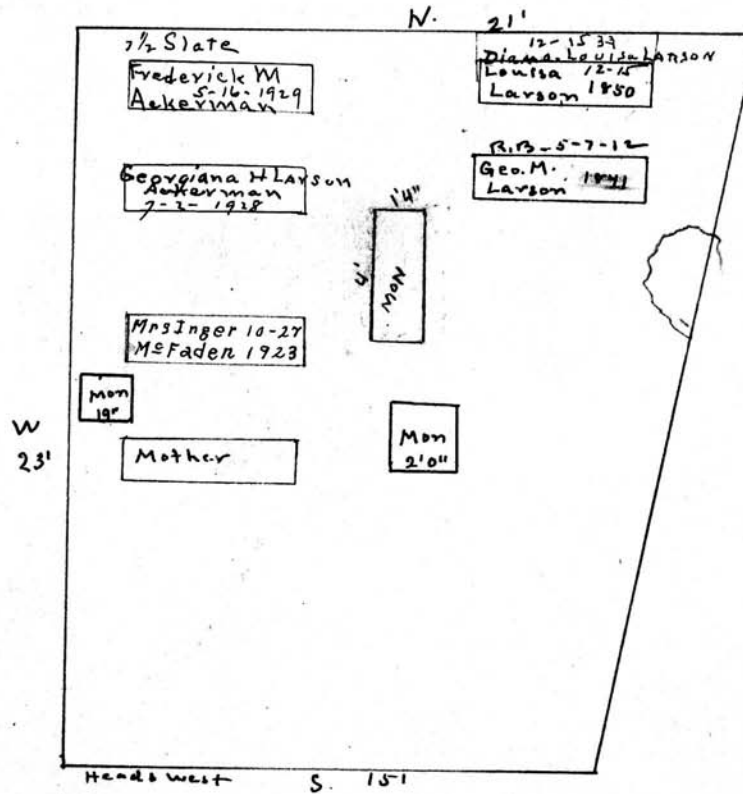 N. 21'
7½ Slate
Frederick M
5-16-1929
Ackerman
12-15 33
Diana Louisa LARSON
Louisa 12-15
Larson 1850
R.B-5-7-12
Geo. M.
Larson 1841
Georgiana H LARSON
Ackerman
7-2-1928
1'4"
4'
Mon
Mrs Inger 10-27
McFaden 1923
Mon
19"
W
23'
Mother
Mon
2'0"
Heads west S. 151